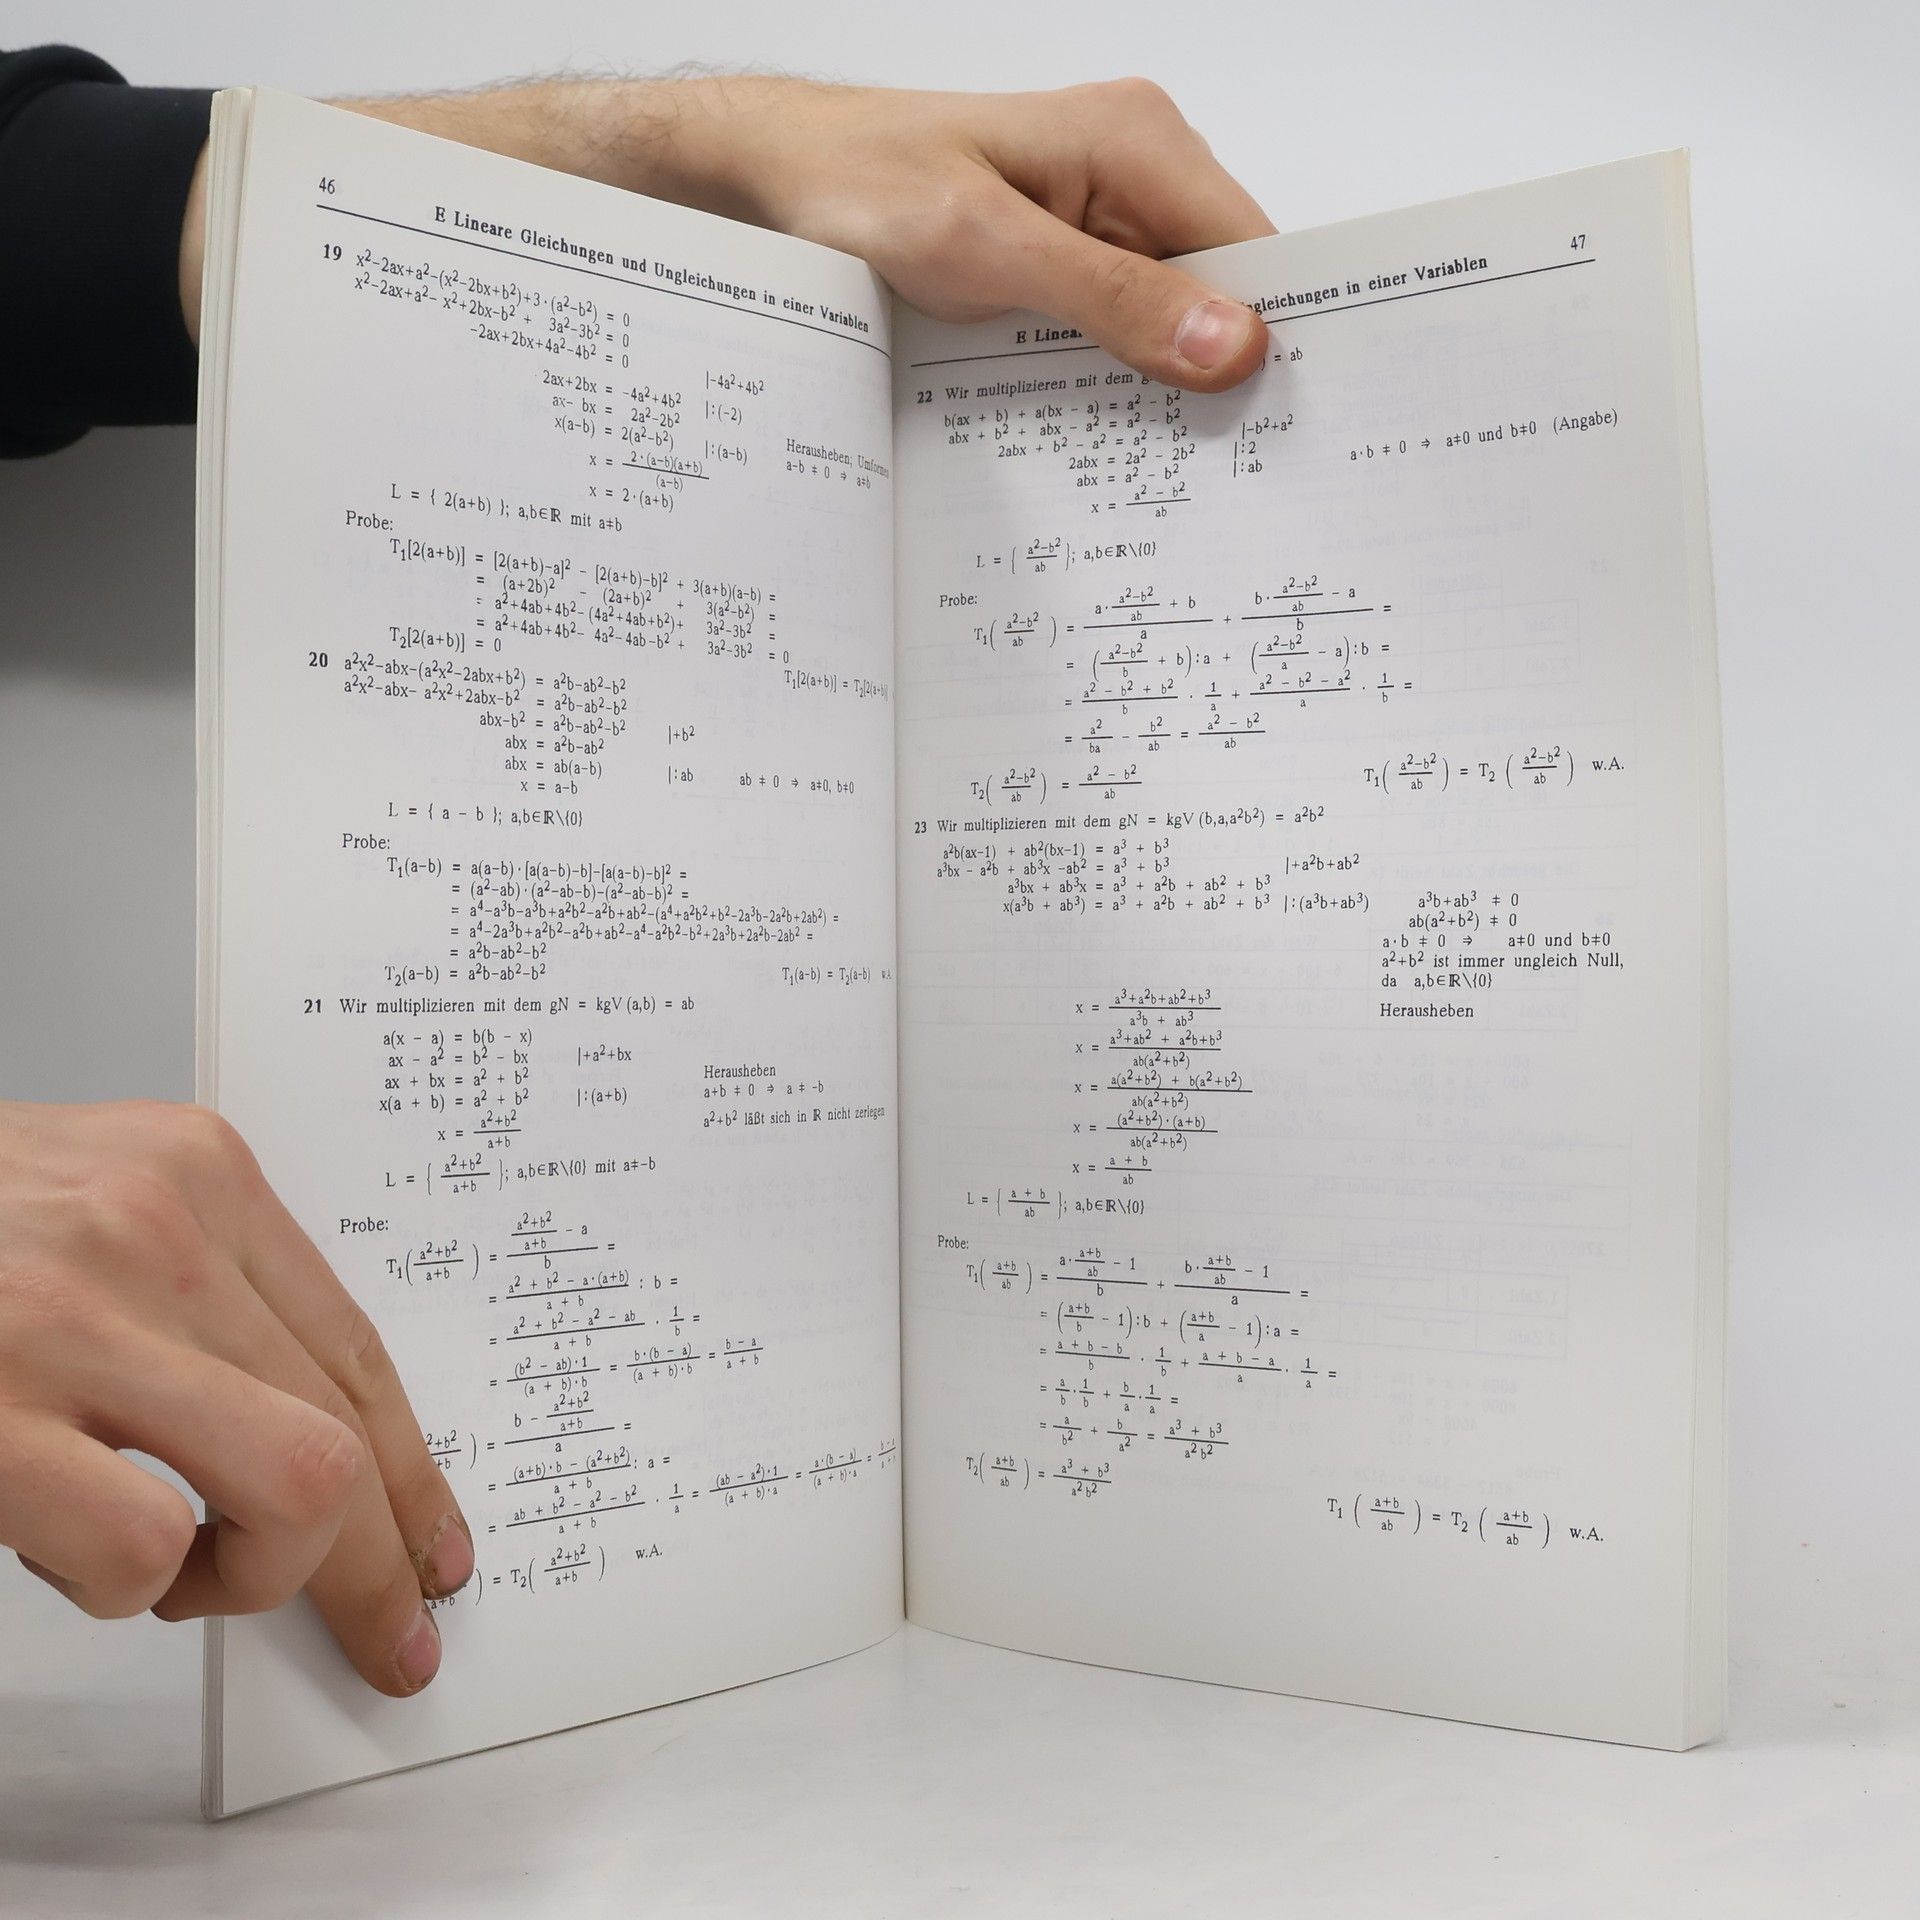 46
E Lineare Gleichungen und Ungleichungen in einer Variablen
19 x²-2ax+a²-(x²-2bx+b²)+3·(a²-b²) = 0
x²-2ax+a²- x²+2bx-b² + 3a²-3b² = 0
-2ax+2bx+4a²-4b² = 0
2ax+2bx = -4a²+4b² |-4a²+4b²
ax- bx = 2a²-2b² |:(-2)
x(a-b) = 2(a²-b²) |:(a-b) Herausheben;
x = 2·(a-b)(a+b)/(a-b) a-b ≠ 0 ⇒ a≠b
x = 2·(a+b)
L = { 2(a+b) }; a,b∈ℝ mit a≠b
Probe:
T₁[2(a+b)] = [2(a+b)-a]² - [2(a+b)-b]² + 3(a+b)(a-b) =
= (a+2b)² - (2a+b)² + 3(a²-b²) =
= a²+4ab+4b²-(4a²+4ab+b²)+ 3a²-3b² =
= a²+4ab+4b²- 4a²-4ab-b² + 3a²-3b² = 0
T₂[2(a+b)] = 0
T₁[2(a+b)] = T₂[2(a+b)]
20 a²x²-abx-(a²x²-2abx+b²) = a²b-ab²-b²
a²x²-abx- a²x²+2abx-b² = a²b-ab²-b²
abx-b² = a²b-ab²-b² |+b²
abx = a²b-ab²
abx = ab(a-b) |:ab ab ≠ 0 ⇒ a≠0, b≠0
x = a-b
L = { a - b }; a,b∈ℝ\{0}
Probe:
T₁(a-b) = a(a-b)·[a(a-b)-b]-[a(a-b)-b]² =
= (a²-ab)·(a²-ab-b)-(a²-ab-b)² =
= a⁴-a³b-a³b+a²b²-a²b+ab²-(a⁴+a²b²+b²-2a³b-2a²b+2ab²) =
= a⁴-2a³b+a²b²-a²b+ab²-a⁴-a²b²-b²+2a³b+2a²b-2ab² =
= a²b-ab²-b²
T₂(a-b) = a²b-ab²-b² T₁(a-b) = T₂(a-b) w.A.
21 Wir multiplizieren mit dem gN = kgV (a,b) = ab
a(x - a) = b(b - x)
ax - a² = b² - bx |+a²+bx
ax + bx = a² + b² Herausheben
x(a + b) = a² + b² |:(a+b) a+b ≠ 0 ⇒ a ≠ -b
x = (a²+b²)/(a+b) a²+b² läßt sich in ℝ nicht zerlegen
L = { (a²+b²)/(a+b) }; a,b∈ℝ\{0} mit a≠-b
Probe:
T₁((a²+b²)/(a+b)) = ((a²+b²)/(a+b) - a)/b =
= (a² + b² - a·(a+b))/(a + b) : b =
= (a² + b² - a² - ab)/(a + b) · 1/b =
= ((b² - ab)·1)/((a + b)·b) = (b·(b - a))/((a + b)·b) = (b - a)/(a + b)
²+b²/+b ) = (b - (a²+b²)/(a+b))/a =
= ((a+b)·b - (a²+b²))/(a + b) : a =
= (ab + b² - a² - b²)/(a + b) · 1/a = ((ab - a²)·1)/((a + b)·a) = (a·(b - a))/((a + b)·a) = (b - a)/(a + b)
a+b ) = T₂((a²+b²)/(a+b)) w.A.
47
E Linea ngleichungen in einer Variablen
22 Wir multiplizieren mit dem g ) = ab
b(ax + b) + a(bx - a) = a² - b²
abx + b² + abx - a² = a² - b²
2abx + b² - a² = a² - b² |-b²+a²
2abx = 2a² - 2b² |:2
abx = a² - b² |:ab a·b ≠ 0 ⇒ a≠0 und b≠0 (Angabe)
x = (a² - b²)/ab
L = { (a²-b²)/ab }; a,b∈ℝ\{0}
Probe:
T₁((a²-b²)/ab) = (a·(a²-b²)/ab + b)/a + (b·(a²-b²)/ab - a)/b =
= ((a²-b²)/b + b):a + ((a²-b²)/a - a):b =
= (a² - b² + b²)/b · 1/a + (a² - b² - a²)/a · 1/b =
= a²/ba - b²/ab = (a² - b²)/ab
T₂((a²-b²)/ab) = (a² - b²)/ab T₁((a²-b²)/ab) = T₂((a²-b²)/ab) w.A.
23 Wir multiplizieren mit dem gN = kgV (b,a,a²b²) = a²b²
a²b(ax-1) + ab²(bx-1) = a³ + b³
a³bx - a²b + ab³x -ab² = a³ + b³ |+a²b+ab²
a³bx + ab³x = a³ + a²b + ab² + b³
x(a³b + ab³) = a³ + a²b + ab² + b³ |:(a³b+ab³) a³b+ab³ ≠ 0
ab(a²+b²) ≠ 0
a·b ≠ 0 ⇒ a≠0 und b≠0
a²+b² ist immer ungleich Null,
da a,b∈ℝ\{0}
x = (a³+a²b+ab²+b³)/(a³b + ab³) Herausheben
x = (a³+ab² + a²b+b³)/(ab(a²+b²))
x = (a(a²+b²) + b(a²+b²))/(ab(a²+b²))
x = ((a²+b²)·(a+b))/(ab(a²+b²))
x = (a + b)/ab
L = { (a + b)/ab }; a,b∈ℝ\{0}
Probe:
T₁((a+b)/ab) = (a·(a+b)/ab - 1)/b + (b·(a+b)/ab - 1)/a =
= ((a+b)/b - 1):b + ((a+b)/a - 1):a =
= (a + b - b)/b · 1/b + (a + b - a)/a · 1/a =
= a/b · 1/b + b/a · 1/a =
= a/b² + b/a² = (a³ + b³)/a²b²
T₂((a+b)/ab) = (a³ + b³)/a²b²
T₁((a+b)/ab) = T₂((a+b)/ab) w.A.